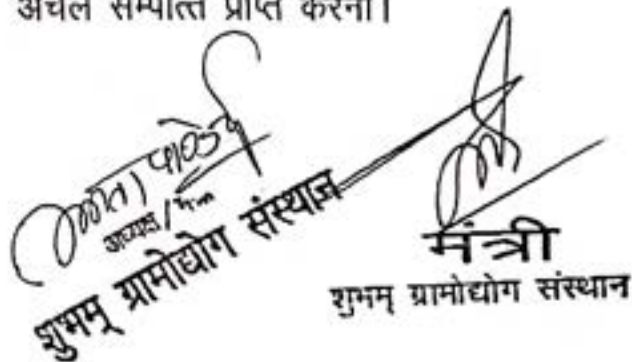 अचल सम्पत्ति प्राप्त करना।
पाण्डे
अध्यक्ष /
शुभम् ग्रामोद्योग संस्थान
मंत्री
शुभम् ग्रामोद्योग संस्थान